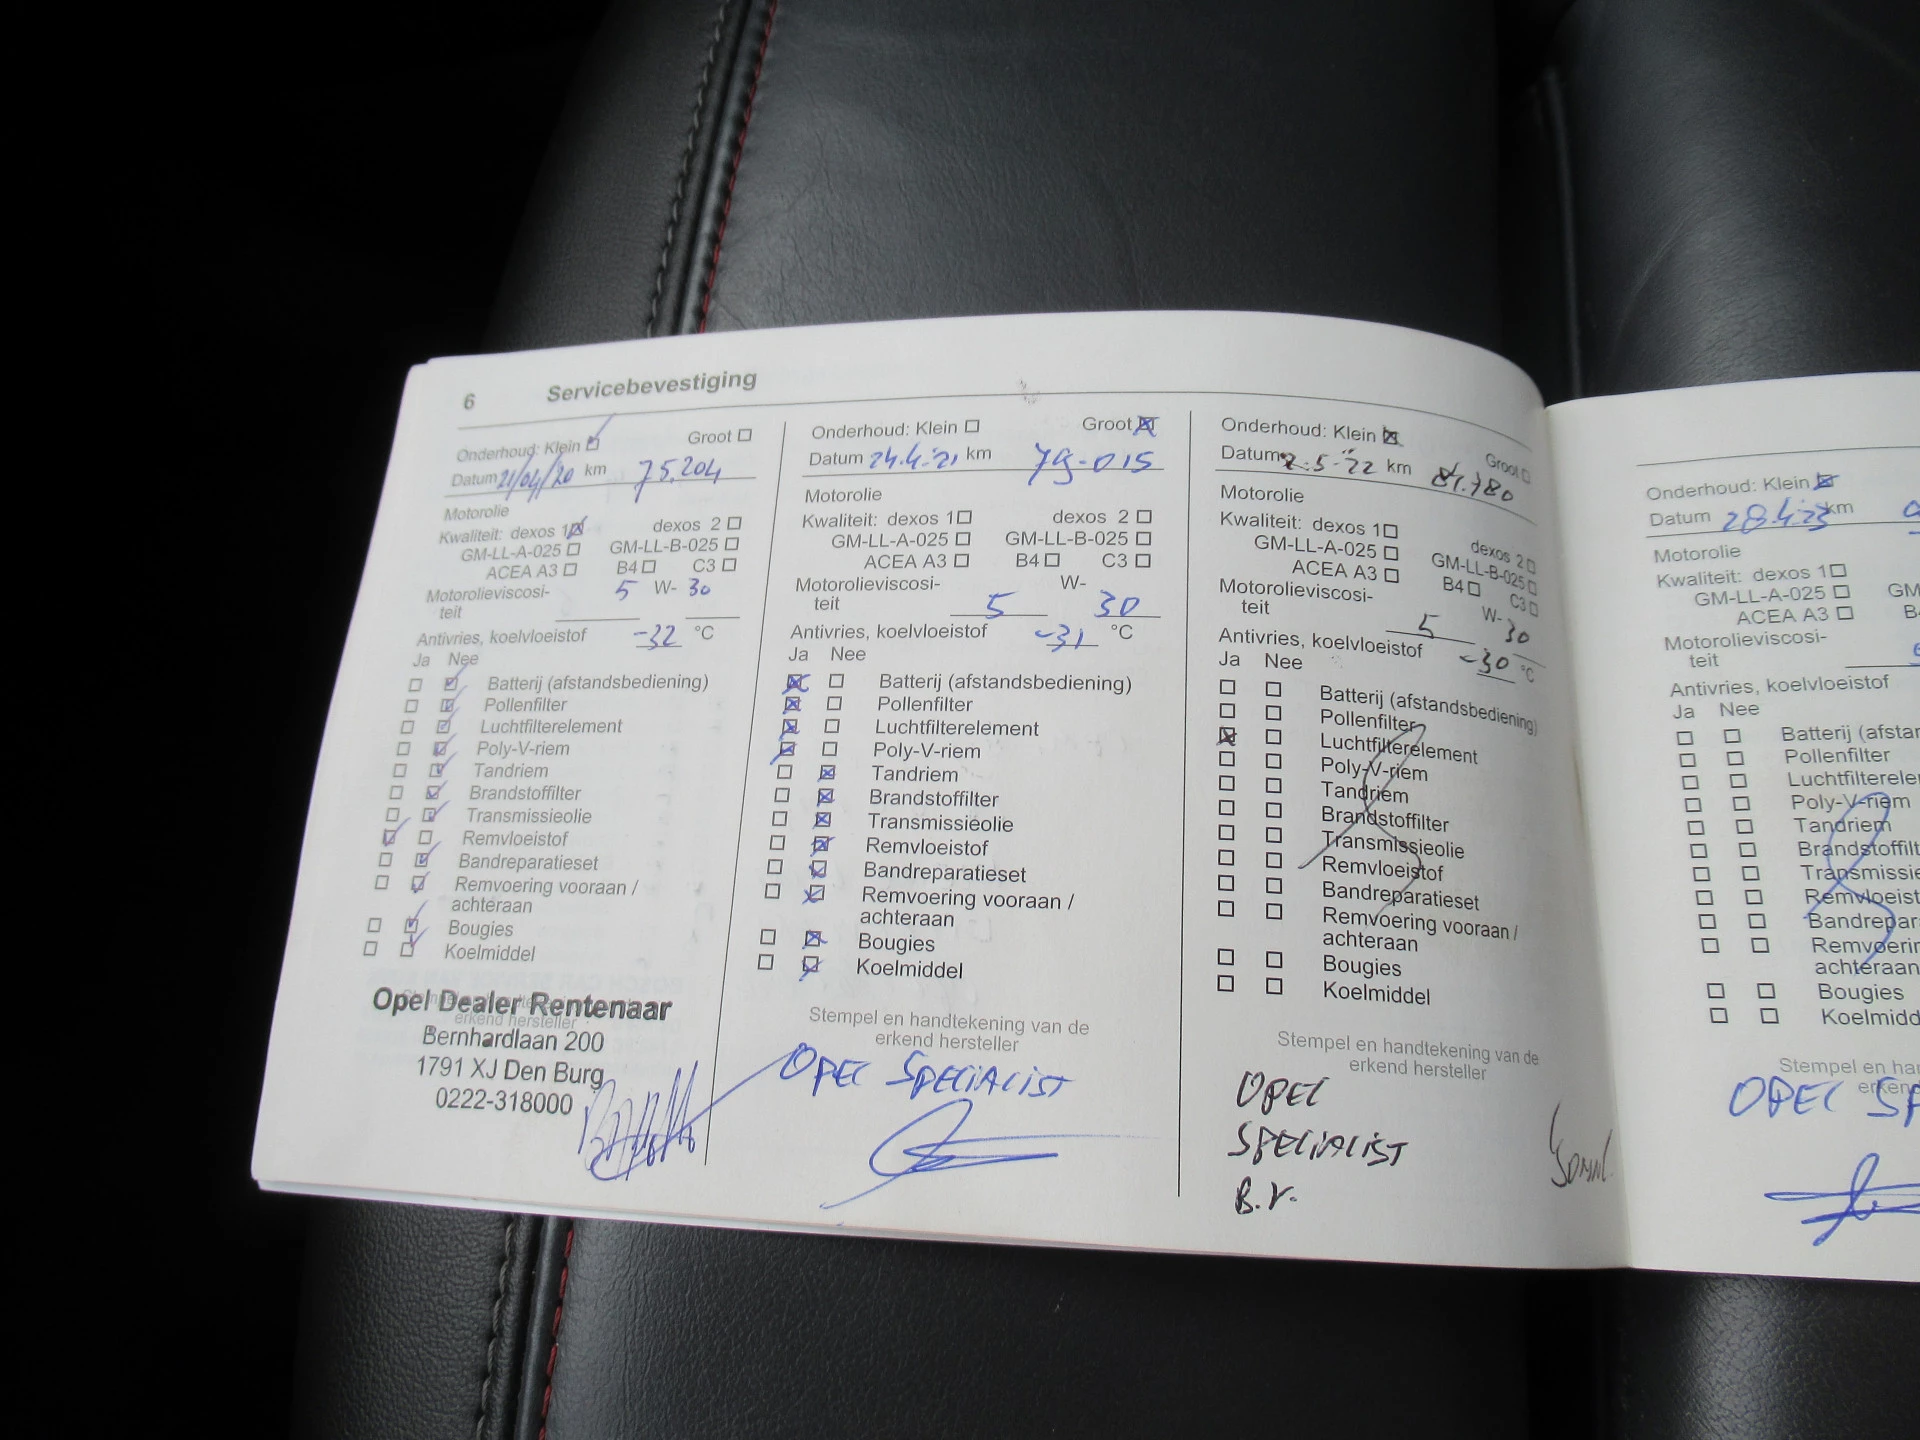 6 Servicebevestiging
Onderhoud: Klein Groot
Datum 21/04/20 km 75.204
Motorolie
Kwaliteit: dexos 1 dexos 2
GM-LL-A-025 GM-LL-B-025
ACEA A3 B4 C3
Motorolieviscosi- 5 W- 30
teit
Antivries, koelvloeistof -32 °C
Ja Nee
Batterij (afstandsbediening)
Pollenfilter
Luchtfilterelement
Poly-V-riem
Tandriem
Brandstoffilter
Transmissieolie
Remvloeistof
Bandreparatieset
Remvoering vooraan /
achteraan
Bougies
Koelmiddel
erkend hersteller
Opel Dealer Rentenaar
Bernhardlaan 200
1791 XJ Den Burg
0222-318000
Onderhoud: Klein Groot
Datum 24.4.'21 km 79-015
Motorolie
Kwaliteit: dexos 1 dexos 2
GM-LL-A-025 GM-LL-B-025
ACEA A3 B4 C3
Motorolieviscosi- W-
teit 5 30
Antivries, koelvloeistof -31 °C
Ja Nee
Batterij (afstandsbediening)
Pollenfilter
Luchtfilterelement
Poly-V-riem
Tandriem
Brandstoffilter
Transmissieolie
Remvloeistof
Bandreparatieset
Remvoering vooraan /
achteraan
Bougies
Koelmiddel
Stempel en handtekening van de
erkend hersteller
OPEL SPECIALIST
Onderhoud: Klein Groot
Datum 2.5-'22 km 81.780
Motorolie
Kwaliteit: dexos 1 dexos 2
GM-LL-A-025 GM-LL-B-025
ACEA A3 B4 C3
Motorolieviscosi- W-
teit 5 30
Antivries, koelvloeistof -30 °C
Ja Nee
Batterij (afstandsbediening)
Pollenfilter
Luchtfilterelement
Poly-V-riem
Tandriem
Brandstoffilter
Transmissieolie
Remvloeistof
Bandreparatieset
Remvoering vooraan /
achteraan
Bougies
Koelmiddel
Stempel en handtekening van de
erkend hersteller
OPEL
SPECIALIST
B.V.
Onderhoud: Klein
Datum 28.4.'23 km
Motorolie
Kwaliteit: dexos 1
GM-LL-A-025 GM
ACEA A3 B
Motorolieviscosi-
teit
Antivries, koelvloeistof
Ja Nee
Batterij (afstan
Pollenfilter
Luchtfilterele
Poly-V-riem
Tandriem
Brandstoffilt
Transmissie
Remvloeist
Bandrepara
Remvoerin
achteraan
Bougies
Koelmidd
Stempel en han
erken
OPEL SP